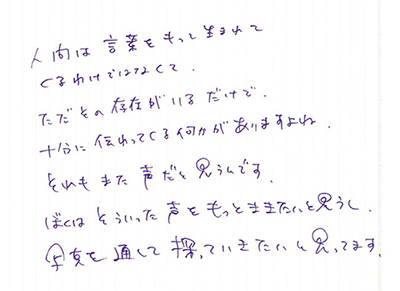 人間は言葉をもって生まれて
くるわけではなくて、
ただその存在がいるだけで、
十分に伝わってくる何かがありますよね。
それもまた声だと思うんです。
ぼくはそういった声をもっとききたいと思うし、
写真を通して探っていきたいと思ってます。